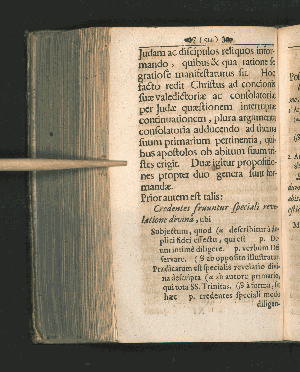 (512)
Judam ac discipulos reliquos infor-
mando, quibus & qua ratione se
gratiose manifestaturus sit. Hoc
facto redit Christus ad concionis
suæ valedictoriæ ac consolatoriæ
per Judæ quæstionem interruptæ
continuationem, plura argumenta
consolatoria adducendo ad thema
suum primarium pertinentia, qui-
bus apostolos ob abitum suum tri-
stes erigit. Duæ igitur propositio-
nes propter duo genera sunt for-
mandæ.
Prior autem est talis:
Credentes fruuntur speciali reve-
latione divina, ubi
Subjectum, quod (α describitur à du-
plici fidei effectu, qui est p. De-
um intime diligere. p. verbum Dei
servare. (β ab opposito illustratur.
Prædicatum est specialis revelatio divi-
na descripta (α ab autore primario,
qui tota SS. Trinitas. (β à forma, se
hæc p. credentes speciali modo
diligen-